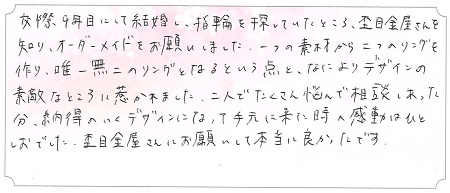 交際9年目にして結婚し、指輪を探していたところ、杢目金屋さんを
知り、オーダーメイドをお願いしました。一つの素材から二つのリングを
作り、唯一無二のリングとなるという点と、なによりデザインの
素敵なところに惹かれました。二人でたくさん悩んで相談しあった
分、納得のいくデザインになって手元に来た時の感動はひと
しおでした。杢目金屋さんにお願いして本当に良かったです。